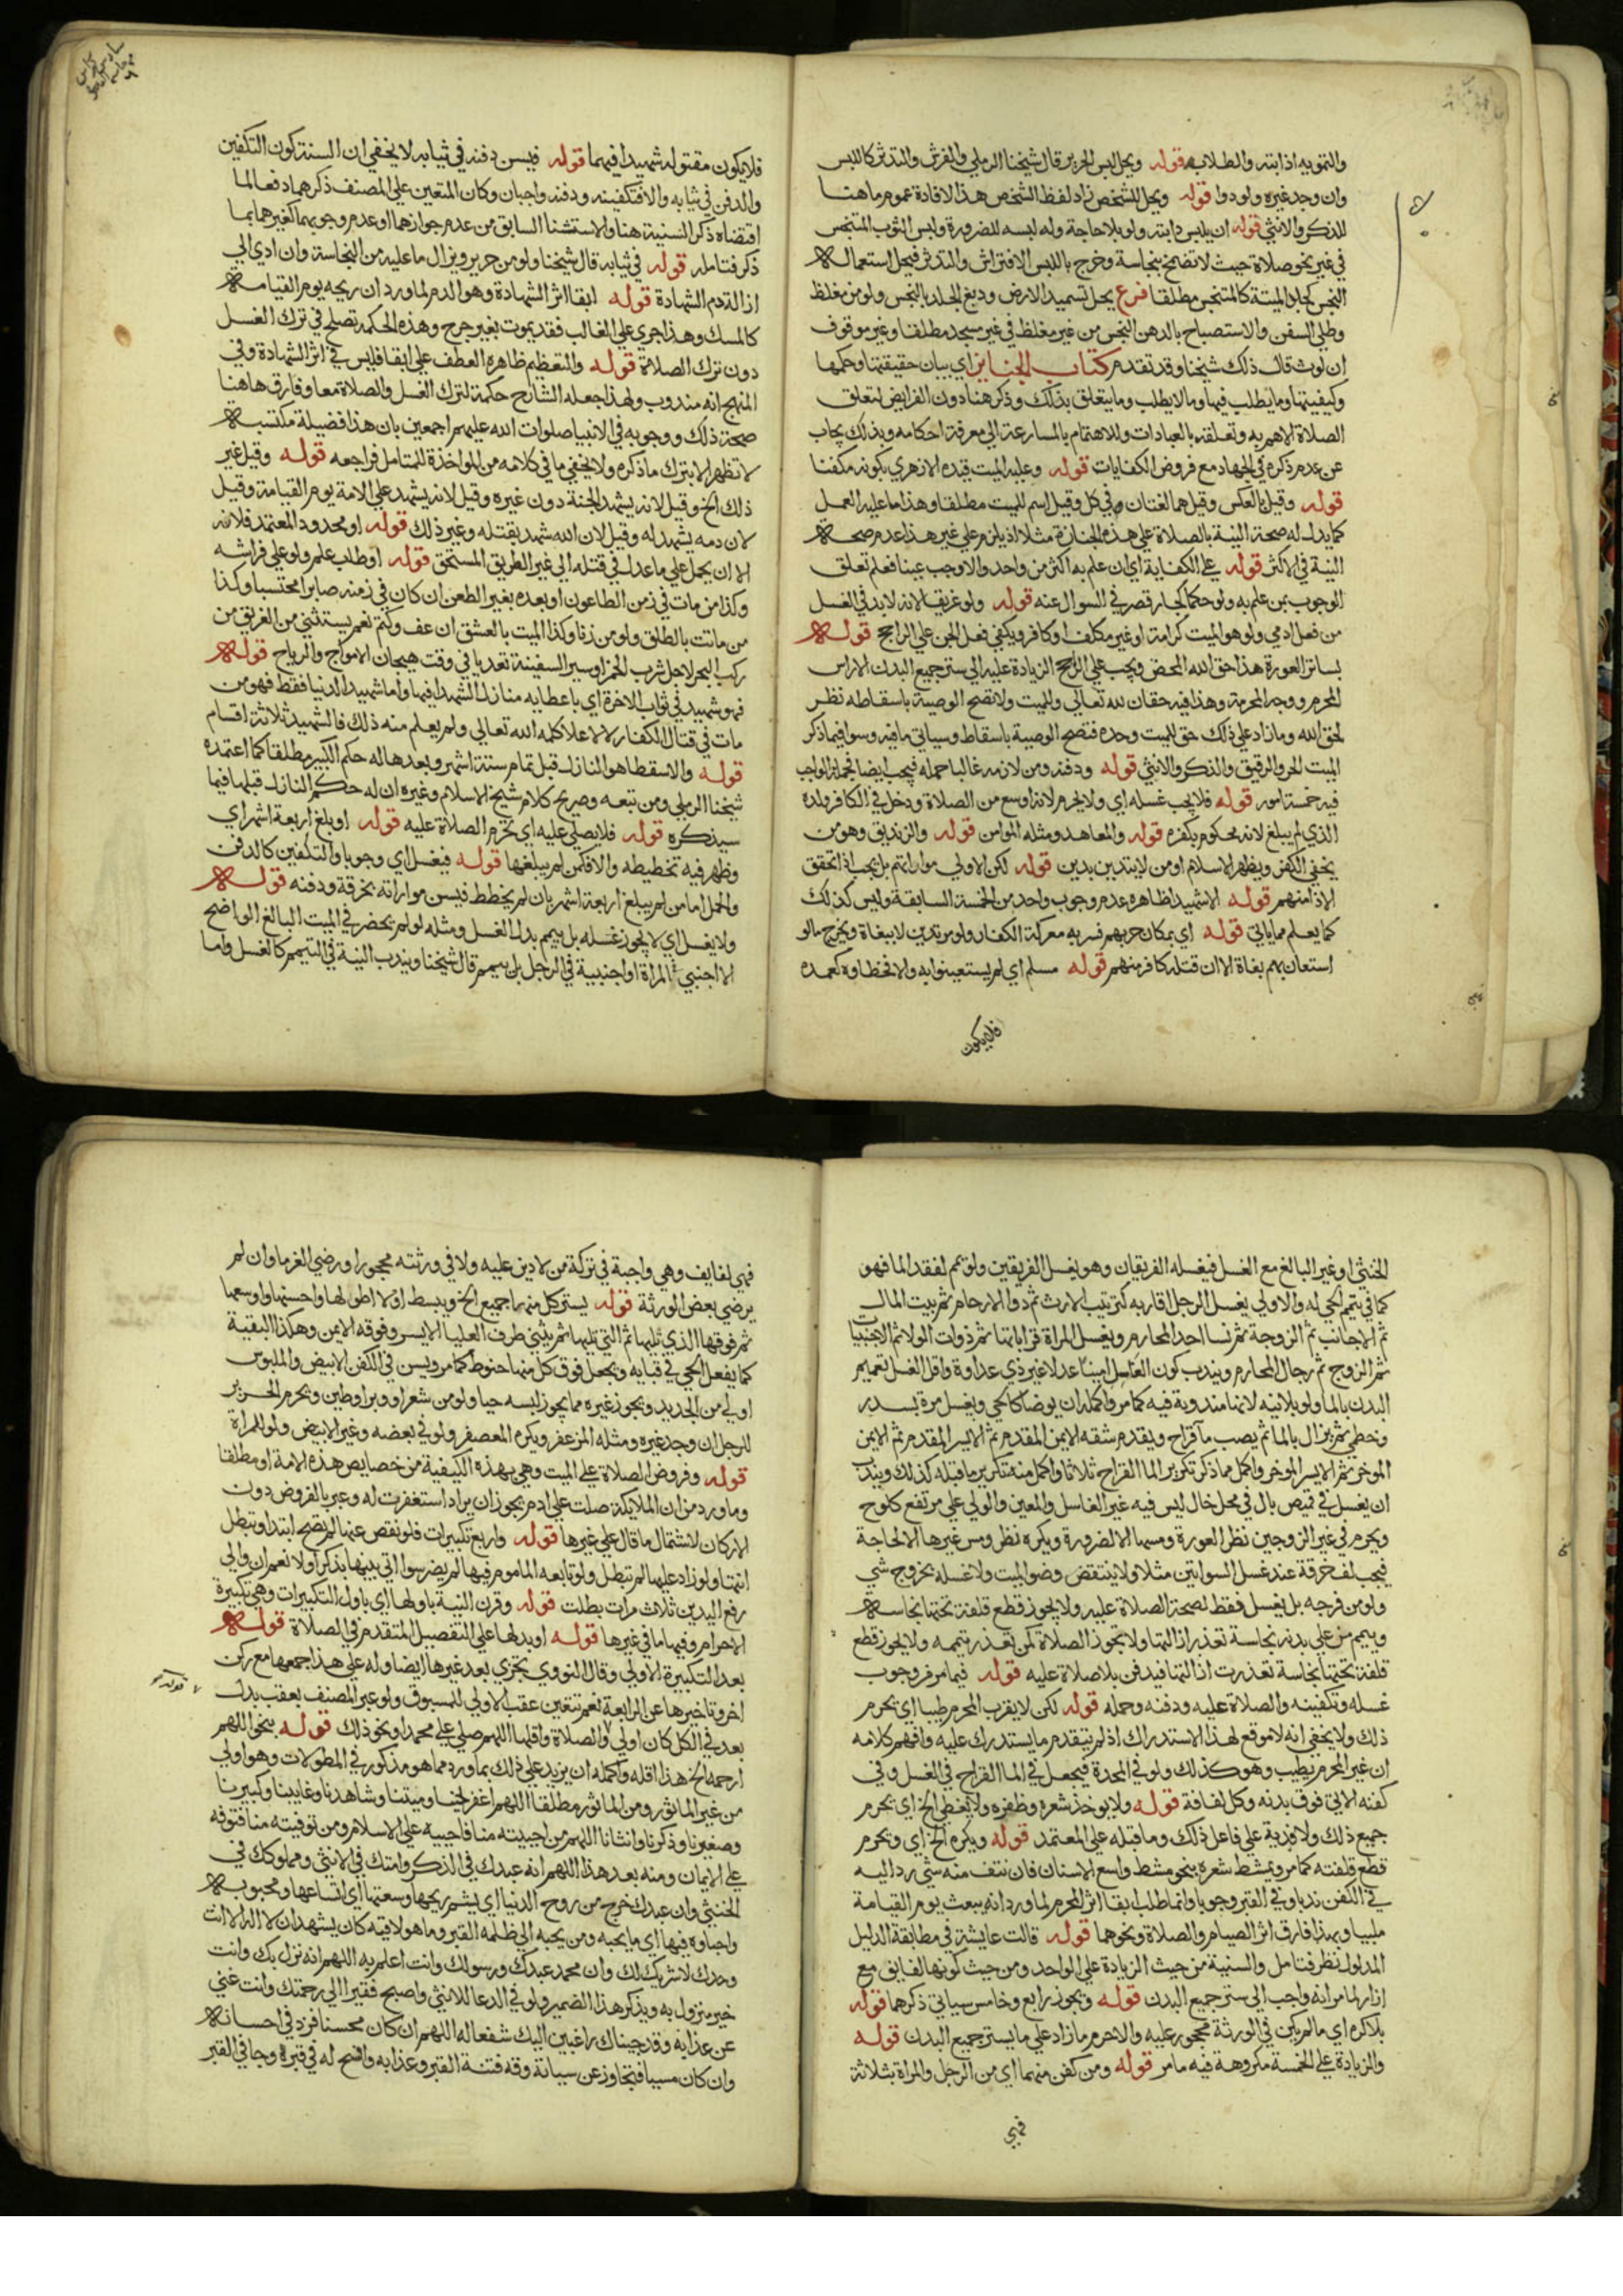 والتمويه اذابته والطلابه قوله ويحل لبس الحرير قال شيخنا الرملي والفرش والتدثر كاللبس
وان وجد غيره ولودوا قوله ويحل للشخص زاد لفظ الشخص هذا لافادة عموم ما هنا
للذكر والانثي قوله ان يلبس دابته ولو بلا حاجة وله لبسه للضرورة ولبس الثوب المتنجس
في غير نحو صلاة حيث لا تضمخ بنجاسة وخرج باللبس الافتراش والتدثر فيحل استعماله
النجس كجلد الميتة كالمتنجس مطلقا فرع يحل تسميد الارض ودبغ الجلد بالنجس ولو من مغلظ
وطلي السفن والاستصباح بالدهن النجس من غير مغلظ في غير مسجد مطلقا وغير موقوف
ان لوث قال ذلك شيخنا وقد تقدم كتاب الجنايز اي بيان حقيقتها وحكمها
وكيفيتها وما يطلب فيها وما لا يطلب وما يتعلق بذلك وذكر هنا دون الفرايض لتعلق
الصلاة الاهم به وتعلقه بالعبادات وللاهتمام بالمسارعة الي معرفة احكامه وبذلك يجاب
عن عدم ذكره في الجهاد مع فروض الكفايات قوله وعليه الميت قيده الازهري بكونه مكفنا
قوله وقيل بالعكس وقيل هما لغتان في كل وقيل اسم للميت مطلقا وهذا ما عليه العمل
كما يدل له صحة النية بالصلاة علي هذه الجنازة مثلا اذ يلزم علي غير هذا عدم صحة
النية في الاكثر قوله علي الكفاية اي ان علم به اكثر من واحد والا وجب عينا فعلم تعلق
الوجوب بمن علم به ولو حكما كجار قصر في السوال عنه قوله ولو غريقا لانه لا بد في الغسل
من فعل ادمي ولو هو الميت كرامة او غير مكلف او كافر ويكفي فعل الجن علي الراجح قوله
بساتر العورة هذا حق الله المحض ويجب علي الراجح الزيادة عليه الي ستر جميع البدن الا راس
المحرم ووجه المحرمة وهذا فيه حقان لله تعالي وللميت ولا تصح الوصية باسقاطه نظر
لحق الله وما زاد علي ذلك حق للميت وحده فتصح الوصية باسقاط وسياتي ما فيه وسوا فيما ذكر
الميت الحر والرقيق والذكر والانثي قوله ودفنه ومن لازمه غالبا حمله فيجب ايضا فجملة الواجب
فيه خمسة امور قوله فلا يجب غسله اي ولا يحرم لانه اوسع من الصلاة ودخل في الكافر ولده
الذي لم يبلغ لانه محكوم بكفره قوله والمعاهد ومثله المومن قوله والزنديق وهو من
يخفي الكفر ويظهر الاسلام او من لا يتدين بدين قوله لكن الاولي مواراتهم بل يجب اذا تحقق
الاذا منهم قوله الا شهيد ظاهره عدم وجوب واحد من الخمسة السابقة وليس كذلك
كما يعلم مما ياتي قوله اي بمكان حربهم نسر به معركة الكفار ولو مرتدين لا ببغاة ويخرج ما لو
استعان بهم بغاة الا ان قتله كافر منهم قوله مسلم اي لم يستعينوا به والا فخطاوه كعمده
فلا يكون
فلا يكون مقتوله شهيدا فيهما قوله فيسن دفنه في ثيابه لا يخفي ان السنة كون التكفين
والدفن في ثيابه والا فتكفينه ودفنه واجبان وكان المتعين علي المصنف ذكرهما دفعا لما
اقتضاه ذكر السنية هنا والاستثنا السابق من عدم جوازهما او عدم وجوبهما كغيرهما بما
ذكر فتامله قوله في ثيابه قال شيخنا ولو من حرير ويزال ما عليه من النجاسة وان ادي الي
ازالة دم الشهادة قوله ابقا اثر الشهادة وهو الدم لما ورد ان ريحه يوم القيامة
كالمسك وهذا جري علي الغالب فقد يموت بغير جرح وهذه الحكمة تصلح في ترك الغسل
دون ترك الصلاة قوله والتعظيم ظاهره العطف علي ابقا فليس في اثر الشهادة وفي
المنهج انه مندوب ولهذا جعله الشارح حكمة لترك الغسل والصلاة معا وفارق ها هنا
صحة ذلك ووجوبه في الانبيا صلوات الله عليهم اجمعين بان هذا فضيلة مكتسبة
لا تظهر الا بترك ما ذكره ولا يخفي ما في كلامه من المواخذة للمتامل فراجعه قوله وقيل غير
ذلك الخ وقيل لانه يشهد الجنة دون غيره وقيل لانه يشهد علي الامة يوم القيامة وقيل
لان دمه يشهد له وقيل لان الله شهد بقتله وغير ذلك قوله او محدود المعتمد فلانه
الا ان يحمل علي ما عدل في قتله الي غير الطريق المستحق قوله او طلب علم ولو علي فراشه
وكذا من مات في زمن الطاعون او بعده بغير الطعن ان كان في زمنه صابرا محتسبا وكذا
من ماتت بالطلق ولو من زنا وكذا الميت بالعشق ان عف وكتم نعم يستثني من الغريق من
ركب البحر لاجل شرب الخمر او سير السفينة تعديا في وقت هيجان الامواج والرياح قوله
فهو شهيد في ثواب الاخرة اي باعطايه منازل الشهدا فيها واما شهيد الدنيا فقط فهو من
مات في قتال الكفار لا لاعلا كلمة الله تعالي ولم يعلم منه ذلك فالشهيد ثلاثة اقسام
قوله والا سقطا هو النازل قبل تمام ستة اشهر وبعدها له حكم الكبير مطلقا كما اعتمده
شيخنا الرملي ومن تبعه وصريح كلام شيخ الاسلام وغيره ان له حكم النازل قبلها فيما
سيذكره قوله فلا يصلي عليه اي تحرم الصلاة عليه قوله او بلغ اربعة اشهر اي
وظهر فيه تخطيطه والا فكمن لم يبلغها قوله فيغسل اي وجوبا والتكفين كالدفن
والحمل اما من لم يبلغ اربعة اشهر بان لم يخطط فيسن مواراته بخرقة ودفنه قوله
ولا يغسل اي لا يجوز غسله بل ييمم بدل الغسل ومثله لو لم يحضر في الميت البالغ الواضح
الا اجنبي المراة او اجنبية في الرجل بل ييمم قال شيخنا ويندب النية في التيمم كالغسل واما
الخنثي او غير البالغ مع الغسل فيغسله الفريقان وهو يغسل الفريقين ولو يمم لفقد الما فهو
كما في تيمم الحي له والاولي بغسل الرجل اقاربه كترتيب الارث ثم ذوا الارحام ثم بيت المال
ثم الاجانب ثم الزوجة ثم نسا احد المحارم وبغسل المراة قراباتها ثم ذوات الولا ثم الاجنبيات
ثم الزوج ثم رجال المحارم ويندب كون الغاسل امينا عدلا غير ذي عداوة واقل الغسل تعميم
البدن بالما ولو بلا نية لانها مندوبة فيه كما مر واكمله ان يوضا كالحي ويغسل مرة بسدر
وخطمي ثم يزال بالما ثم يصب ما قراح ويقدم شقه الايمن المقدم ثم الايسر المقدم ثم الايمن
الموخر ثم الايسر الموخر واكمل مما ذكر تكرير الما القراح ثلاثا واكمل منه تكرير ما قبله كذلك ويندب
ان يغسل في قميص بال في محل خال ليس فيه غير الغاسل والمعين والولي علي مرتفع كلوح
ويحرم في غير الزوجين نظر العورة ومسها الا لضرورة ويكره نظر ومس غيرها الا لحاجة
فيجب لف خرقة عند غسل السواتين مثلا ولا ينتقض وضو الميت ولا غسله بخروج شي
ولو من فرجه بل يغسل فقط لصحة الصلاة عليه ولا يجوز قطع قلفة تحتها نجاسة
وييمم من علي بدنه نجاسة تعذر ازالتها ولا تجوز الصلاة لمن تعذر تيممه ولا يجوز قطع
قلفة تحتها نجاسة تعذرت ازالتها فيدفن بلا صلاة عليه قوله فيما مر فروجوب
غسله وتكفينه والصلاة عليه ودفنه وحمله قوله لكن لا يقرب المحرم طيبا اي يحرم
ذلك ولا يخفي انه لا موقع لهذا الاستدراك اذ لم يتقدم ما يستدرك عليه وافهم كلامه
ان غير المحرم يطيب وهو كذلك ولو في المحدة فيجعل في الما القراح في الغسل وفي
كفنه الاتي فوق بدنه وكل لفافة قوله ولا يوخذ شعره وظفره ولا يغطي الخ اي يحرم
جميع ذلك ولا فدية علي فاعل ذلك وما قبله علي المعتمد قوله ويكره الخ اي ويحرم
قطع قلفته كما مر ويمشط شعره بنحو مشط واسع الاسنان فان نتف منه شي رد اليه
في الكفن ندبا وفي القبر وجوبا وانما طلب بقا اثر المحرم لما ورد انه يبعث يوم القيامة
ملبيا وبهذا فارق اثر الصيام والصلاة ونحوهما قوله قالت عايشة في مطابقة الدليل
المدلول نظر فتامل والسنية من حيث الزيادة علي الواحد ومن حيث كونها لفايف مع
ازار لما مر انه واجب الي ستر جميع البدن قوله ويجوز رابع وخامس سياتي ذكرهما قوله
بلا كره اي ما لم يكن في الورثة محجور عليه والا حرم ما زاد علي ما يستر جميع البدن قوله
والزيادة علي الخمسة مكروهة فيه ما مر قوله ومن كفن منهما اي من الرجل والمراة بثلاثة
فهي
فهي لفايف وهي واجبة في تركة من لا دين عليه ولا في ورثته محجورا ورضي الغرما وان لم
يرضي بعض الورثة قوله يستر كل منها جميع الخ ويبسط اولا اطولها واحسنها واوسعها
ثم فوقها الذي تليها ثم التي تليها ثم يثني طرف العليا الايسر وفوقه الايمن وهكذا البقية
كما يفعل الحي في قبايه ويجعل فوق كل منها حنوط كما مر ويسن في الكفن الابيض والملبوس
اولي من الجديد ويجوز غيره مما يجوز لبسه حيا ولو من شعر او وبر او طين ويحرم الحرير
للرجل ان وجد غيره ومثله المزعفر ويكره المعصفر ولو في بعضه وغير الابيض ولو للمراة
قوله وفروض الصلاة علي الميت وهي بهذه الكيفية من خصايص هذه الامة او مطلقا
وما ورد من ان الملايكة صلت علي ادم يجوز ان يراد استغفرت له وعبر بالفروض دون
الاركان لاشتمال ما قال علي غيرها قوله واربع تكبيرات فلو نقص عنها لم تصح ابتدا وتبطل
انتها ولو زاد عليها لم تبطل ولو تابعه الماموم فيها لم يضر سوا اتي بينها بذكر اولا نعم ان والي
رفع اليدين ثلاث مرات بطلت قوله وقرن النية باولها اي باول التكبيرات وهي تكبيرة
الاحرام وفيها ما في غيرها قوله او بدلها علي التفصيل المتقدم في الصلاة قوله
بعد التكبيرة الاولي وقال النووي يجزي بعد غيرها ايضا وله علي هذا جمعها مع ركن
اخر وتاخيرها عن الرابعة نعم تتعين عقب الاولي للمسبوق ولو عبر المصنف بعقب بدل
بعد في الكل كان اولي والصلاة واقلها اللهم صلي علي محمد او نحو ذلك قوله بنحو اللهم
ارحمه الخ هذا اقله واكمله ان يزيد علي ذلك بما ورد مما هو مذكور في المطولات وهو اولي
من غير الماثور ومن الماثور مطلقا اللهم اغفر لحينا وميتنا وشاهدنا وغايبنا وكبيرنا
وصغيرنا وذكرنا وانثانا اللهم من احييته منا فاحييه علي الاسلام ومن توفيته منا فتوفه
علي الايمان ومنه بعد هذا اللهم انه عبدك في الذكر وامتك في الانثي ومملوكك في
الخنثي وان عبدك خرج من روح الدنيا اي بشم ريحها وسعتها اي اتساعها ومحبوبه
واحباوه فيها اي ما يحبه ومن يحبه الي ظلمة القبر وما هو لاقيه كان يشهد ان لا اله الا انت
وحدك لا شريك لك وان محمد عبدك ورسولك وانت اعلم به اللهم انه نزل بك وانت
خير منزول به ويذكر هذا الضمير ولو في الدعا للانثي واصبح فقيرا الي رحمتك وانت غني
عن عذابه وقد جيناك راغبين اليك شفعا له اللهم ان كان محسنا فزد في احسانه
وان كان مسيا فتجاوز عن سياته وقه فتنة القبر وعذابه وافسح له في قبره وجافي القبر